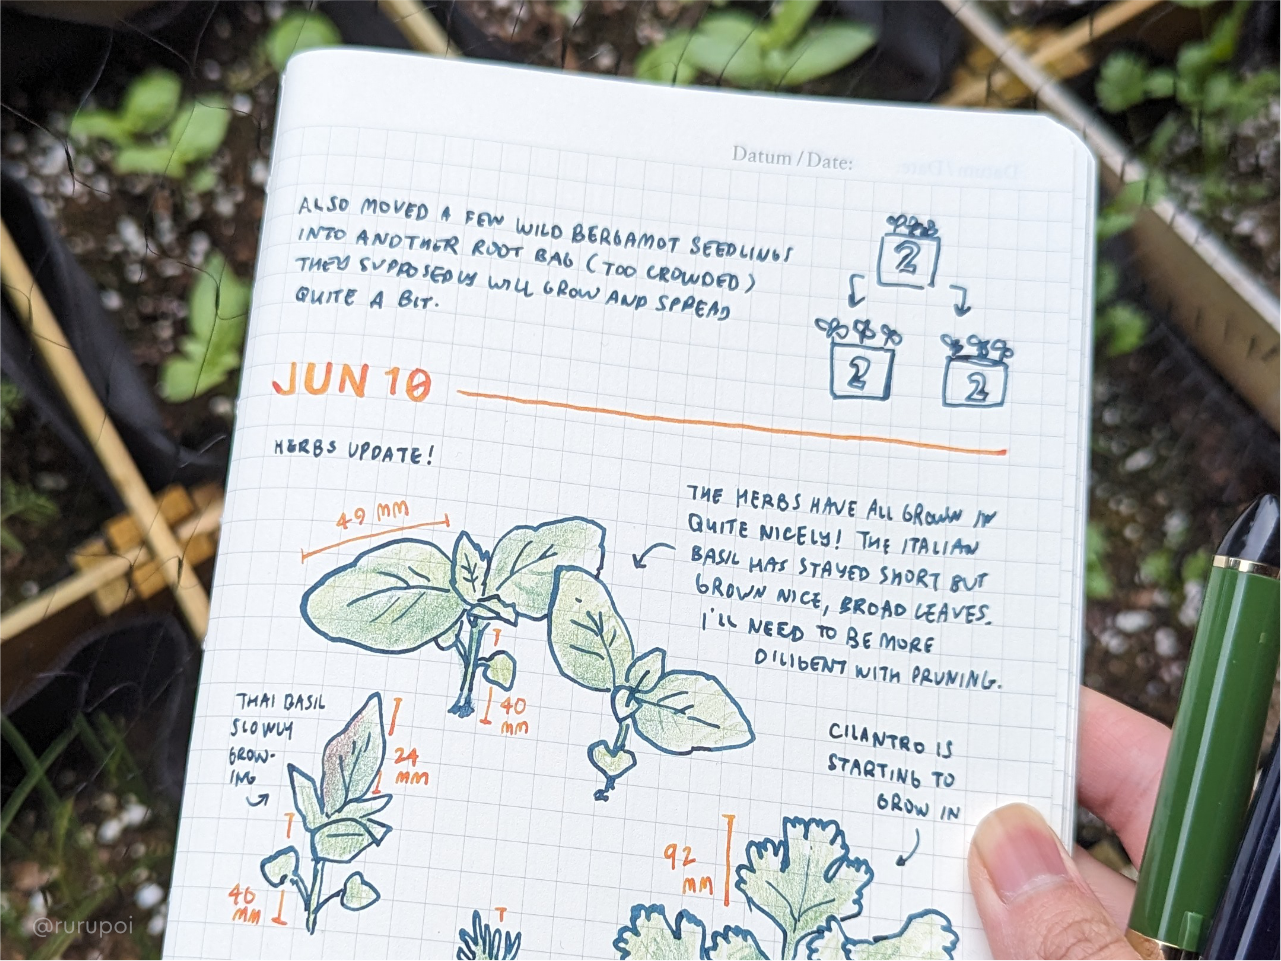 Datum / Date:
ALSO MOVED A FEW WILD BERGAMOT SEEDLINGS
INTO ANOTHER ROOT BAG (TOO CROWDED)
THEY SUPPOSEDLY WILL GROW AND SPREAD
QUITE A BIT.
2
2
2
JUN 10
HERBS UPDATE!
49 MM
THE HERBS HAVE ALL GROWN IN
QUITE NICELY! THE ITALIAN
BASIL HAS STAYED SHORT BUT
GROWN NICE, BROAD LEAVES.
I'LL NEED TO BE MORE
DILIGENT WITH PRUNING.
40
MM
THAI BASIL
SLOWLY
GROW-
ING
24
MM
40
MM
CILANTRO IS
STARTING TO
GROW IN
92
MM
@rurupoi